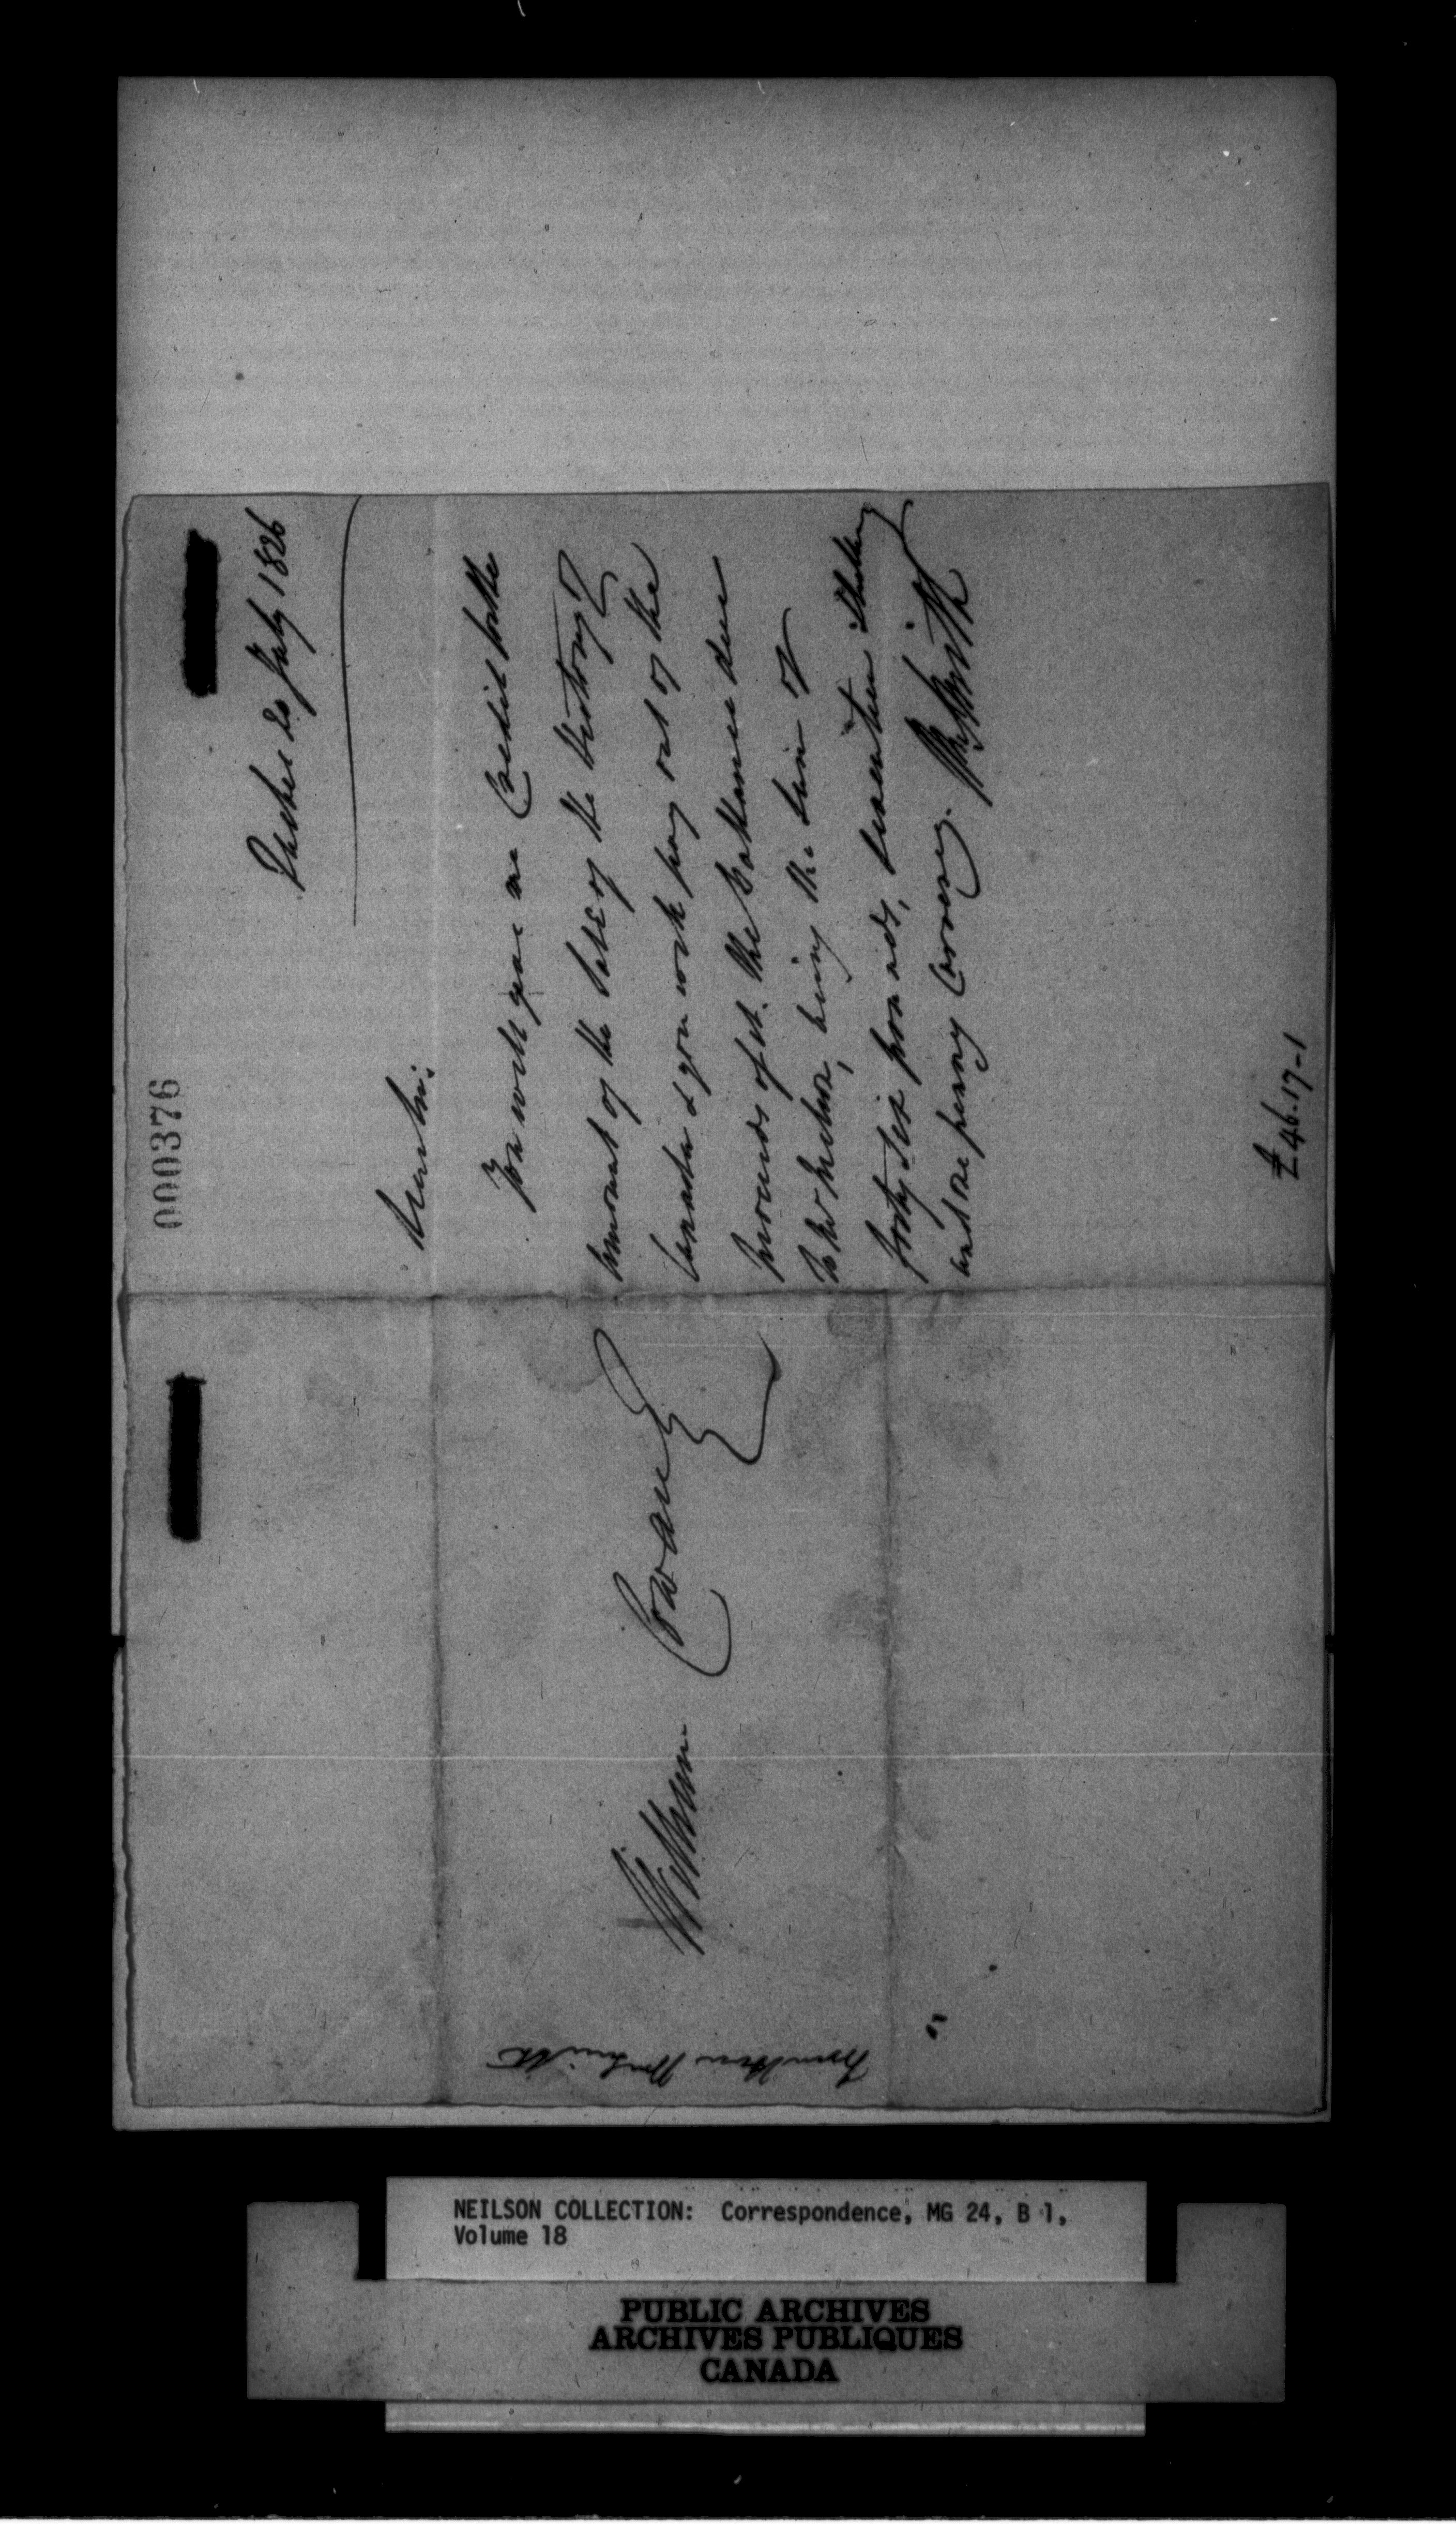 000376
Quebec 20 July 1826
Dear Sir:
You will give me Credit for the
amount of the Sale of the History of
Canada & you will pay out of the
proceeds of it. the Ballance due
to Mr Neilson, being the Sum of
forty Six pounds, Seventeen Shillings
and one penny Currency. Wm Smith
£46.17-1
William Cowan
NEILSON COLLECTION: Correspondence, MG 24, B 1,
Volume 18
PUBLIC ARCHIVES
ARCHIVES PUBLIQUES
CANADA